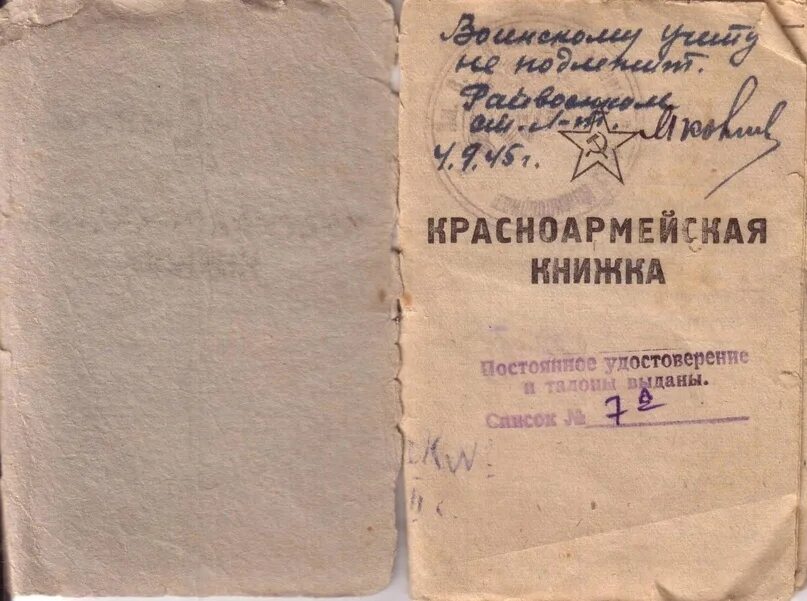 Воинскому учету
не подлежит.
Райвоенком
Яковлев
4.9.45 г.
КРАСНОАРМЕЙСКАЯ
КНИЖКА
Постоянное удостоверение
и талоны выданы.
Список № 7а